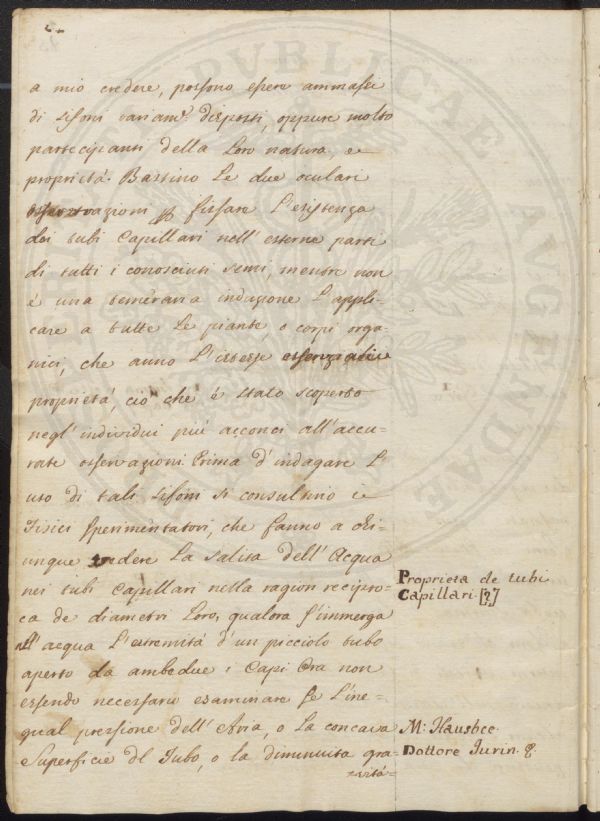 2
a mio credere, possono essere ammassi
di sifoni variam.e disposti, oppure molto
partecipanti della loro natura, e
proprietà. Bastino le due oculari
osservazioni p fissare l'esistenza
dei tubi Capillari nell' esterne parti
di tutti i conosciuti semi, mentre non
è una temeraria induzione l'appli-
care a tutte le piante, o corpi orga-
nici, che anno l'istesse essenziali
proprietà, ciò che è stato scoperto
negl' individui più acconci all'accu-
rate osservazioni. Prima d'indagare l'
uso di tali sifoni si consultino i
Fisici sperimentatori, che fanno a chi-
unque vedere la salita dell' Acqua
nei tubi Capillari nella ragion recipro-
ca de diametri loro, qualora s'immerga
all' acqua l'estremità d'un picciolo tubo
aperto da ambedue i Capi Ora non
essendo necessario esaminare se l'ine-
qual pressione dell' Aria, o la concava
Superficie del Tubo, o la diminuita gra-
vità=
Proprietà de tubi
Capillari. [?]
M: Hausbee.
Dottore Jurin.
PVBLICAE
AVGENDAE